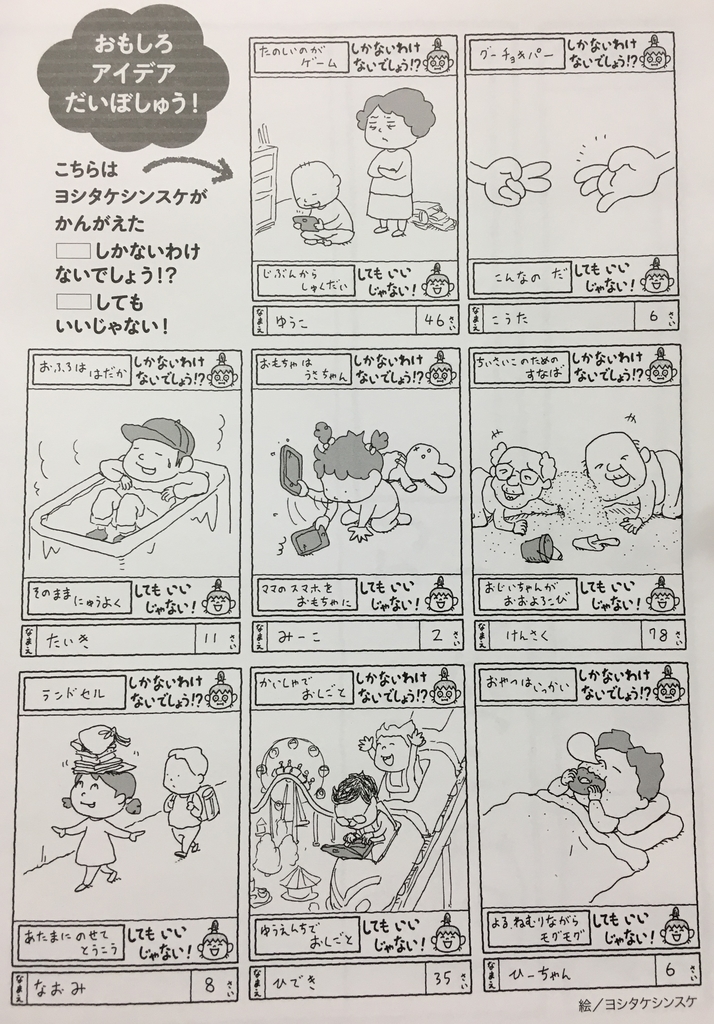 おもしろ
アイデア
だいぼしゅう！
こちらは
ヨシタケシンスケが
かんがえた
しかないわけ
ないでしょう!?
しても
いいじゃない！
たのしいのが
ゲーム
しかないわけ
ないでしょう!?
じぶんから
しゅくだい
しても いい
じゃない！
なまえ
ゆうこ
46 さい
グーチョキパー
しかないわけ
ないでしょう!?
こんなの だ
しても いい
じゃない！
なまえ
こうた
6 さい
おふろは はだか
しかないわけ
ないでしょう!?
そのまま にゅうよく
しても いい
じゃない！
なまえ
たいき
11 さい
おもちゃは
うさちゃん
しかないわけ
ないでしょう!?
ママのスマホを
おもちゃに
しても いい
じゃない！
なまえ
みーこ
2 さい
ちいさいこのための
すなば
しかないわけ
ないでしょう!?
おじいちゃんが
おおよろこび
しても いい
じゃない！
なまえ
けんさく
78 さい
ランドセル
しかないわけ
ないでしょう!?
あたまに のせて
とうこう
しても いい
じゃない！
なまえ
なおみ
8 さい
かいしゃで
おしごと
しかないわけ
ないでしょう!?
ゆうえんちで
おしごと
しても いい
じゃない！
なまえ
ひでき
35 さい
おやつはいっかい
しかないわけ
ないでしょう!?
よる、ねむりながら
モグモグ
しても いい
じゃない！
なまえ
ひーちゃん
6 さい
絵／ヨシタケシンスケ